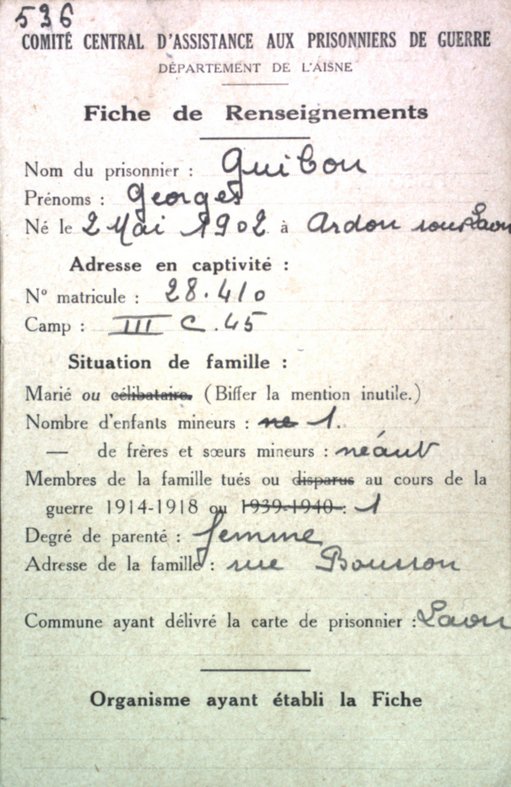 536
COMITÉ CENTRAL D'ASSISTANCE AUX PRISONNIERS DE GUERRE
DÉPARTEMENT DE L'AISNE
Fiche de Renseignements
Nom du prisonnier : Guibon
Prénoms : Georges
Né le 2 Mai 1902 à Ardon sous Laon
Adresse en captivité :
N° matricule : 28.410
Camp : III C.45
Situation de famille :
Marié ou célibataire. (Biffer la mention inutile.)
Nombre d'enfants mineurs : ne 1.
— de frères et sœurs mineurs : néant
Membres de la famille tués ou disparus au cours de la
guerre 1914-1918 ou 1939-1940 : 1
Degré de parenté : femme
Adresse de la famille : rue Bousson
Commune ayant délivré la carte de prisonnier : Laon
Organisme ayant établi la Fiche